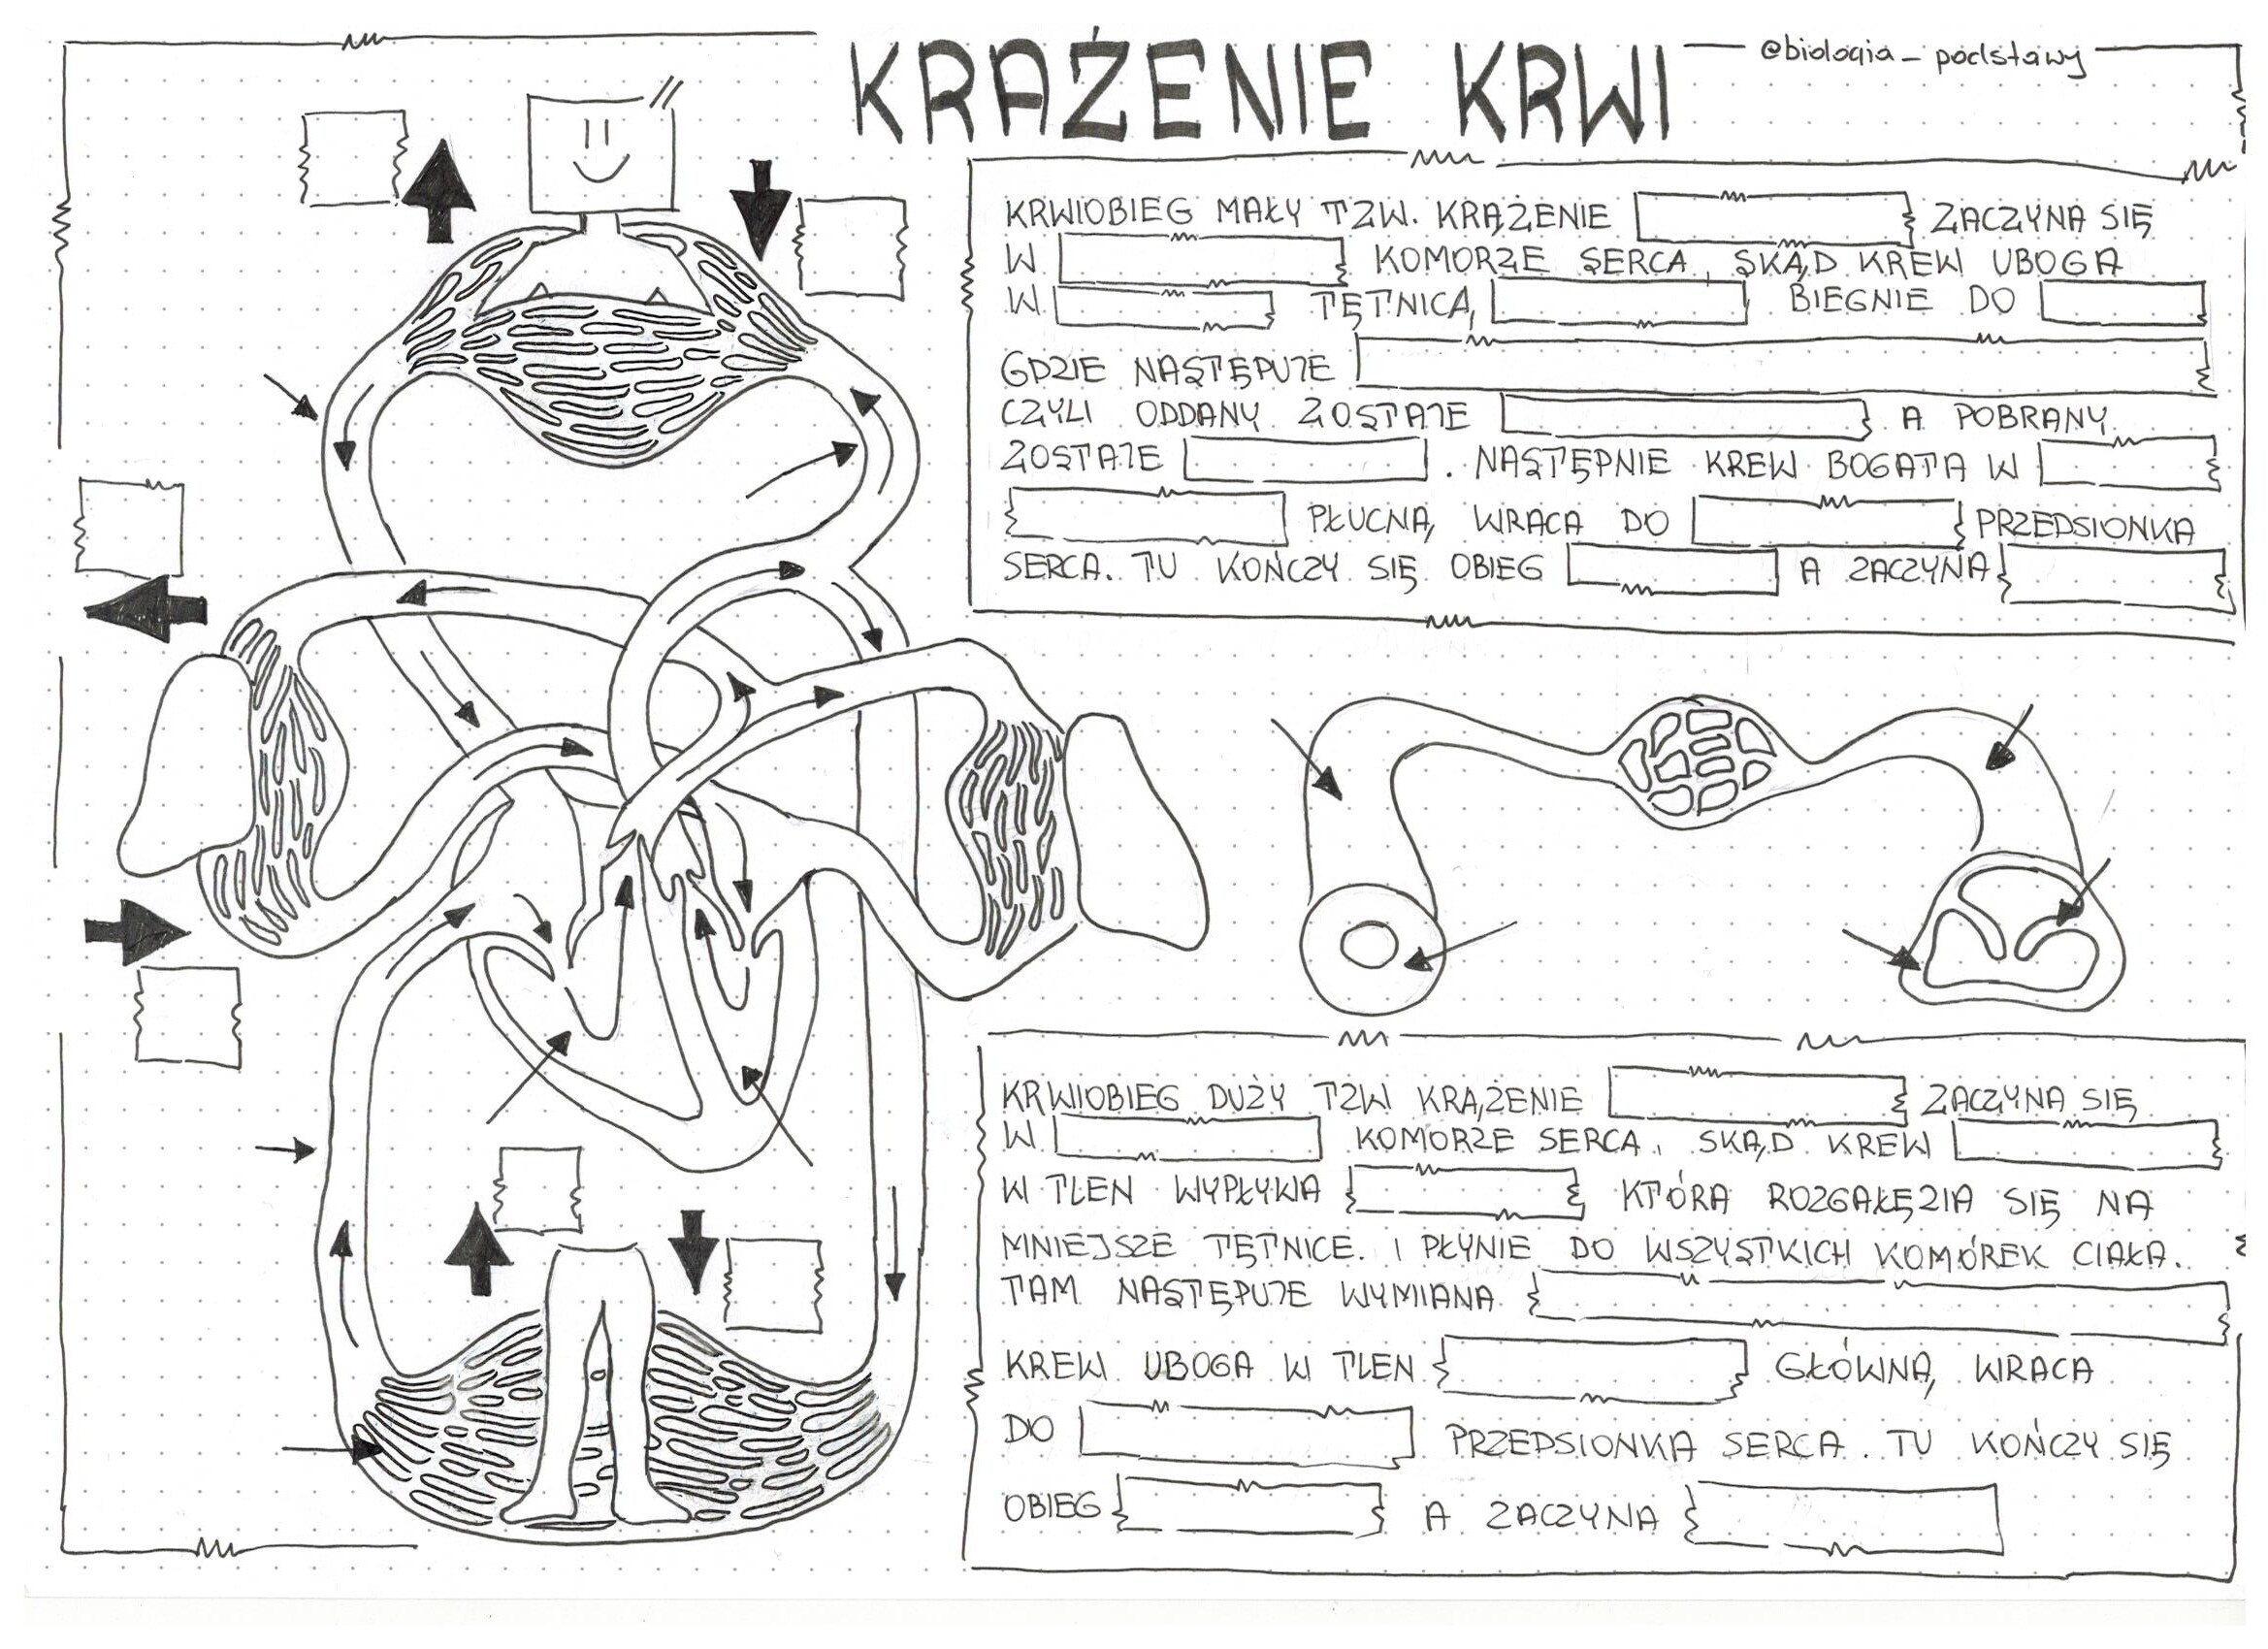 KRĄŻENIE KRWI
@biologia_podstawy
KRWIOBIEG MAŁY TZW. KRĄŻENIE ZACZYNA SIĘ
W KOMORZE SERCA, SKĄD KREW UBOGA
W TĘTNICĄ BIEGNIE DO
GDZIE NASTĘPUJE
CZYLI ODDANY ZOSTAJE A POBRANY
ZOSTAJE . NASTĘPNIE KREW BOGATA W
PŁUCNĄ WRACA DO PRZEDSIONKA
SERCA. TU KOŃCZY SIĘ OBIEG A ZACZYNA
KRWIOBIEG DUŻY TZW KRĄŻENIE ZACZYNA SIĘ
W KOMORZE SERCA, SKĄD KREW
W TLEN WYPŁYWA KTÓRA ROZGAŁĘZIA SIĘ NA
MNIEJSZE TĘTNICE. I PŁYNIE DO WSZYSTKICH KOMÓREK CIAŁA.
TAM NASTĘPUJE WYMIANA
KREW UBOGA W TLEN GŁÓWNĄ WRACA
DO PRZEDSIONKA SERCA. TU KOŃCZY SIĘ
OBIEG A ZACZYNA